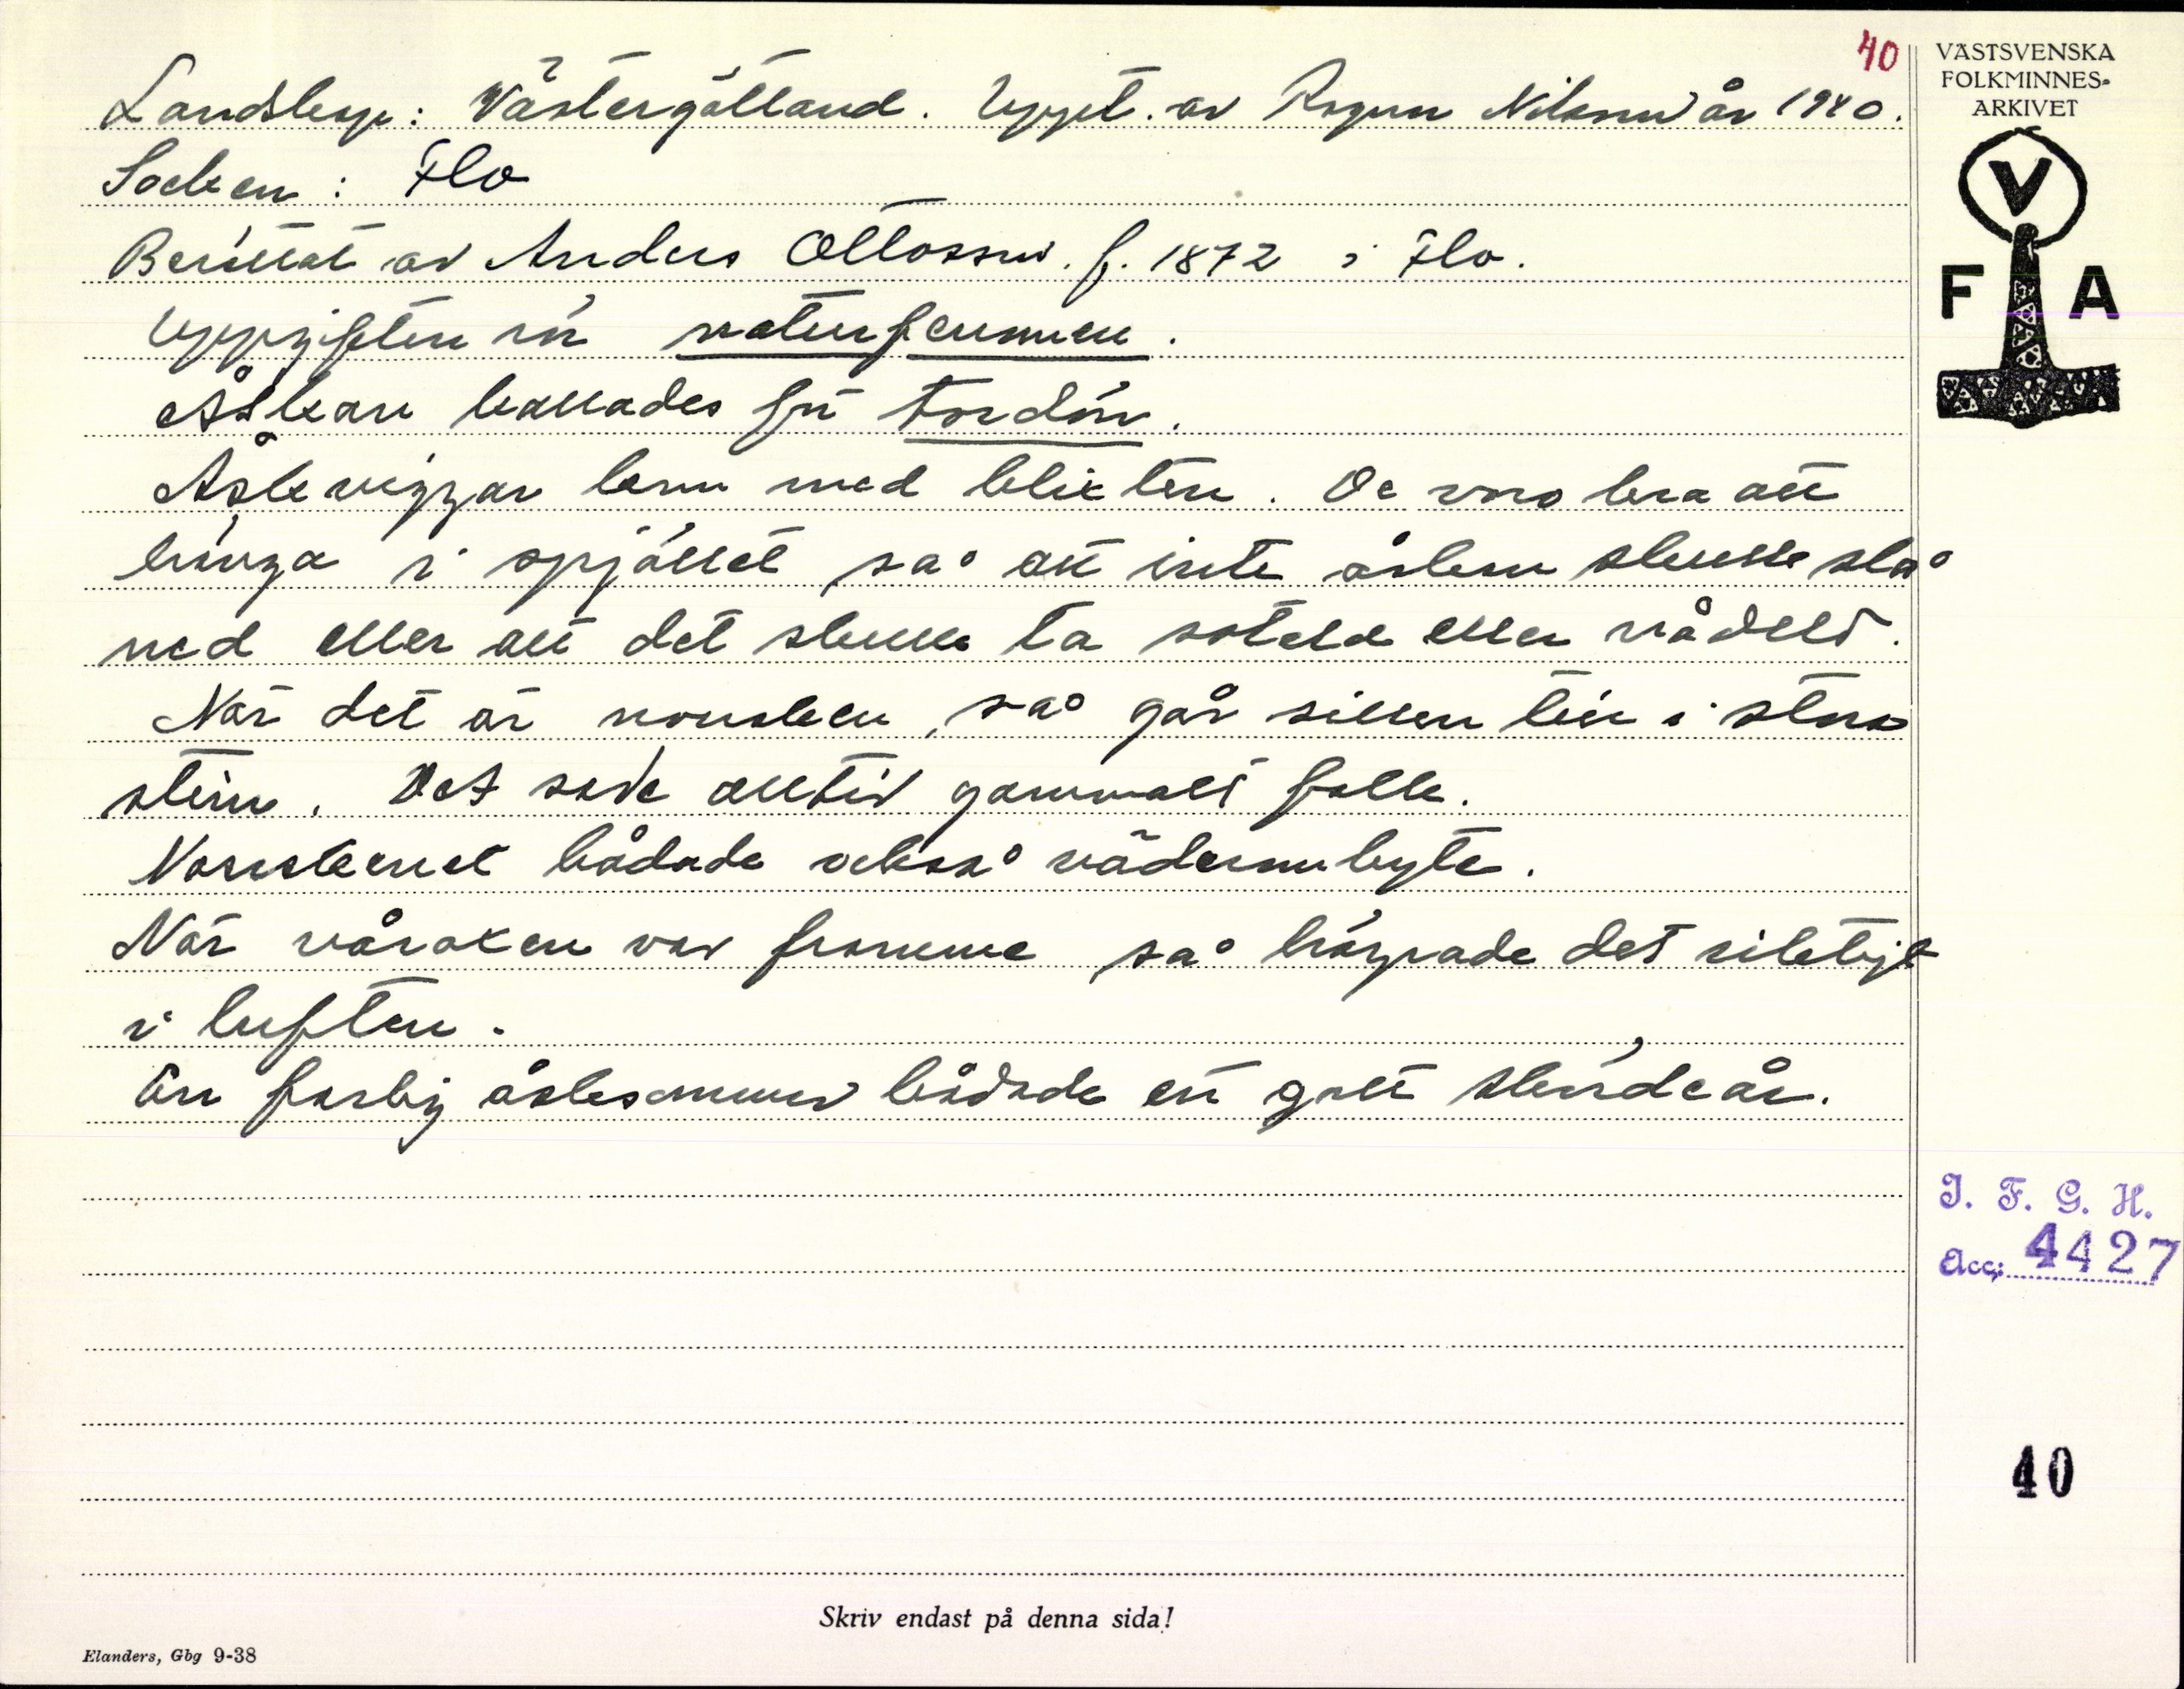 40
VÄSTSVENSKA
FOLKMINNES-
ARKIVET
V
F A
Landskap: Västergötland. Uppt. av Ragnar Nilsson år 1940.
Socken: Flo
Berättat av Anders Ottosson. f. 1872 i Flo.
Uppgiften är naturfenomen.
Åskan kallades för tordön.
Åskviggar kom med blixten. De voro bra att
hänga i spjället, så att inte åsken skulle slå
ned eller att det skulle ta soteld eller vådeld.
När det är norrsken, så går sillen till i stora
stim. Det sade alltid gammalt folk.
Norrskenet bådade också väderombyte.
När våraxen var framme så härpade det
i luften.
En farlig åsksommar bådade ett gott skördeår.
I. F. G. H.
Acc: 4427
40
Skriv endast på denna sida!
Elanders, Gbg 9-38